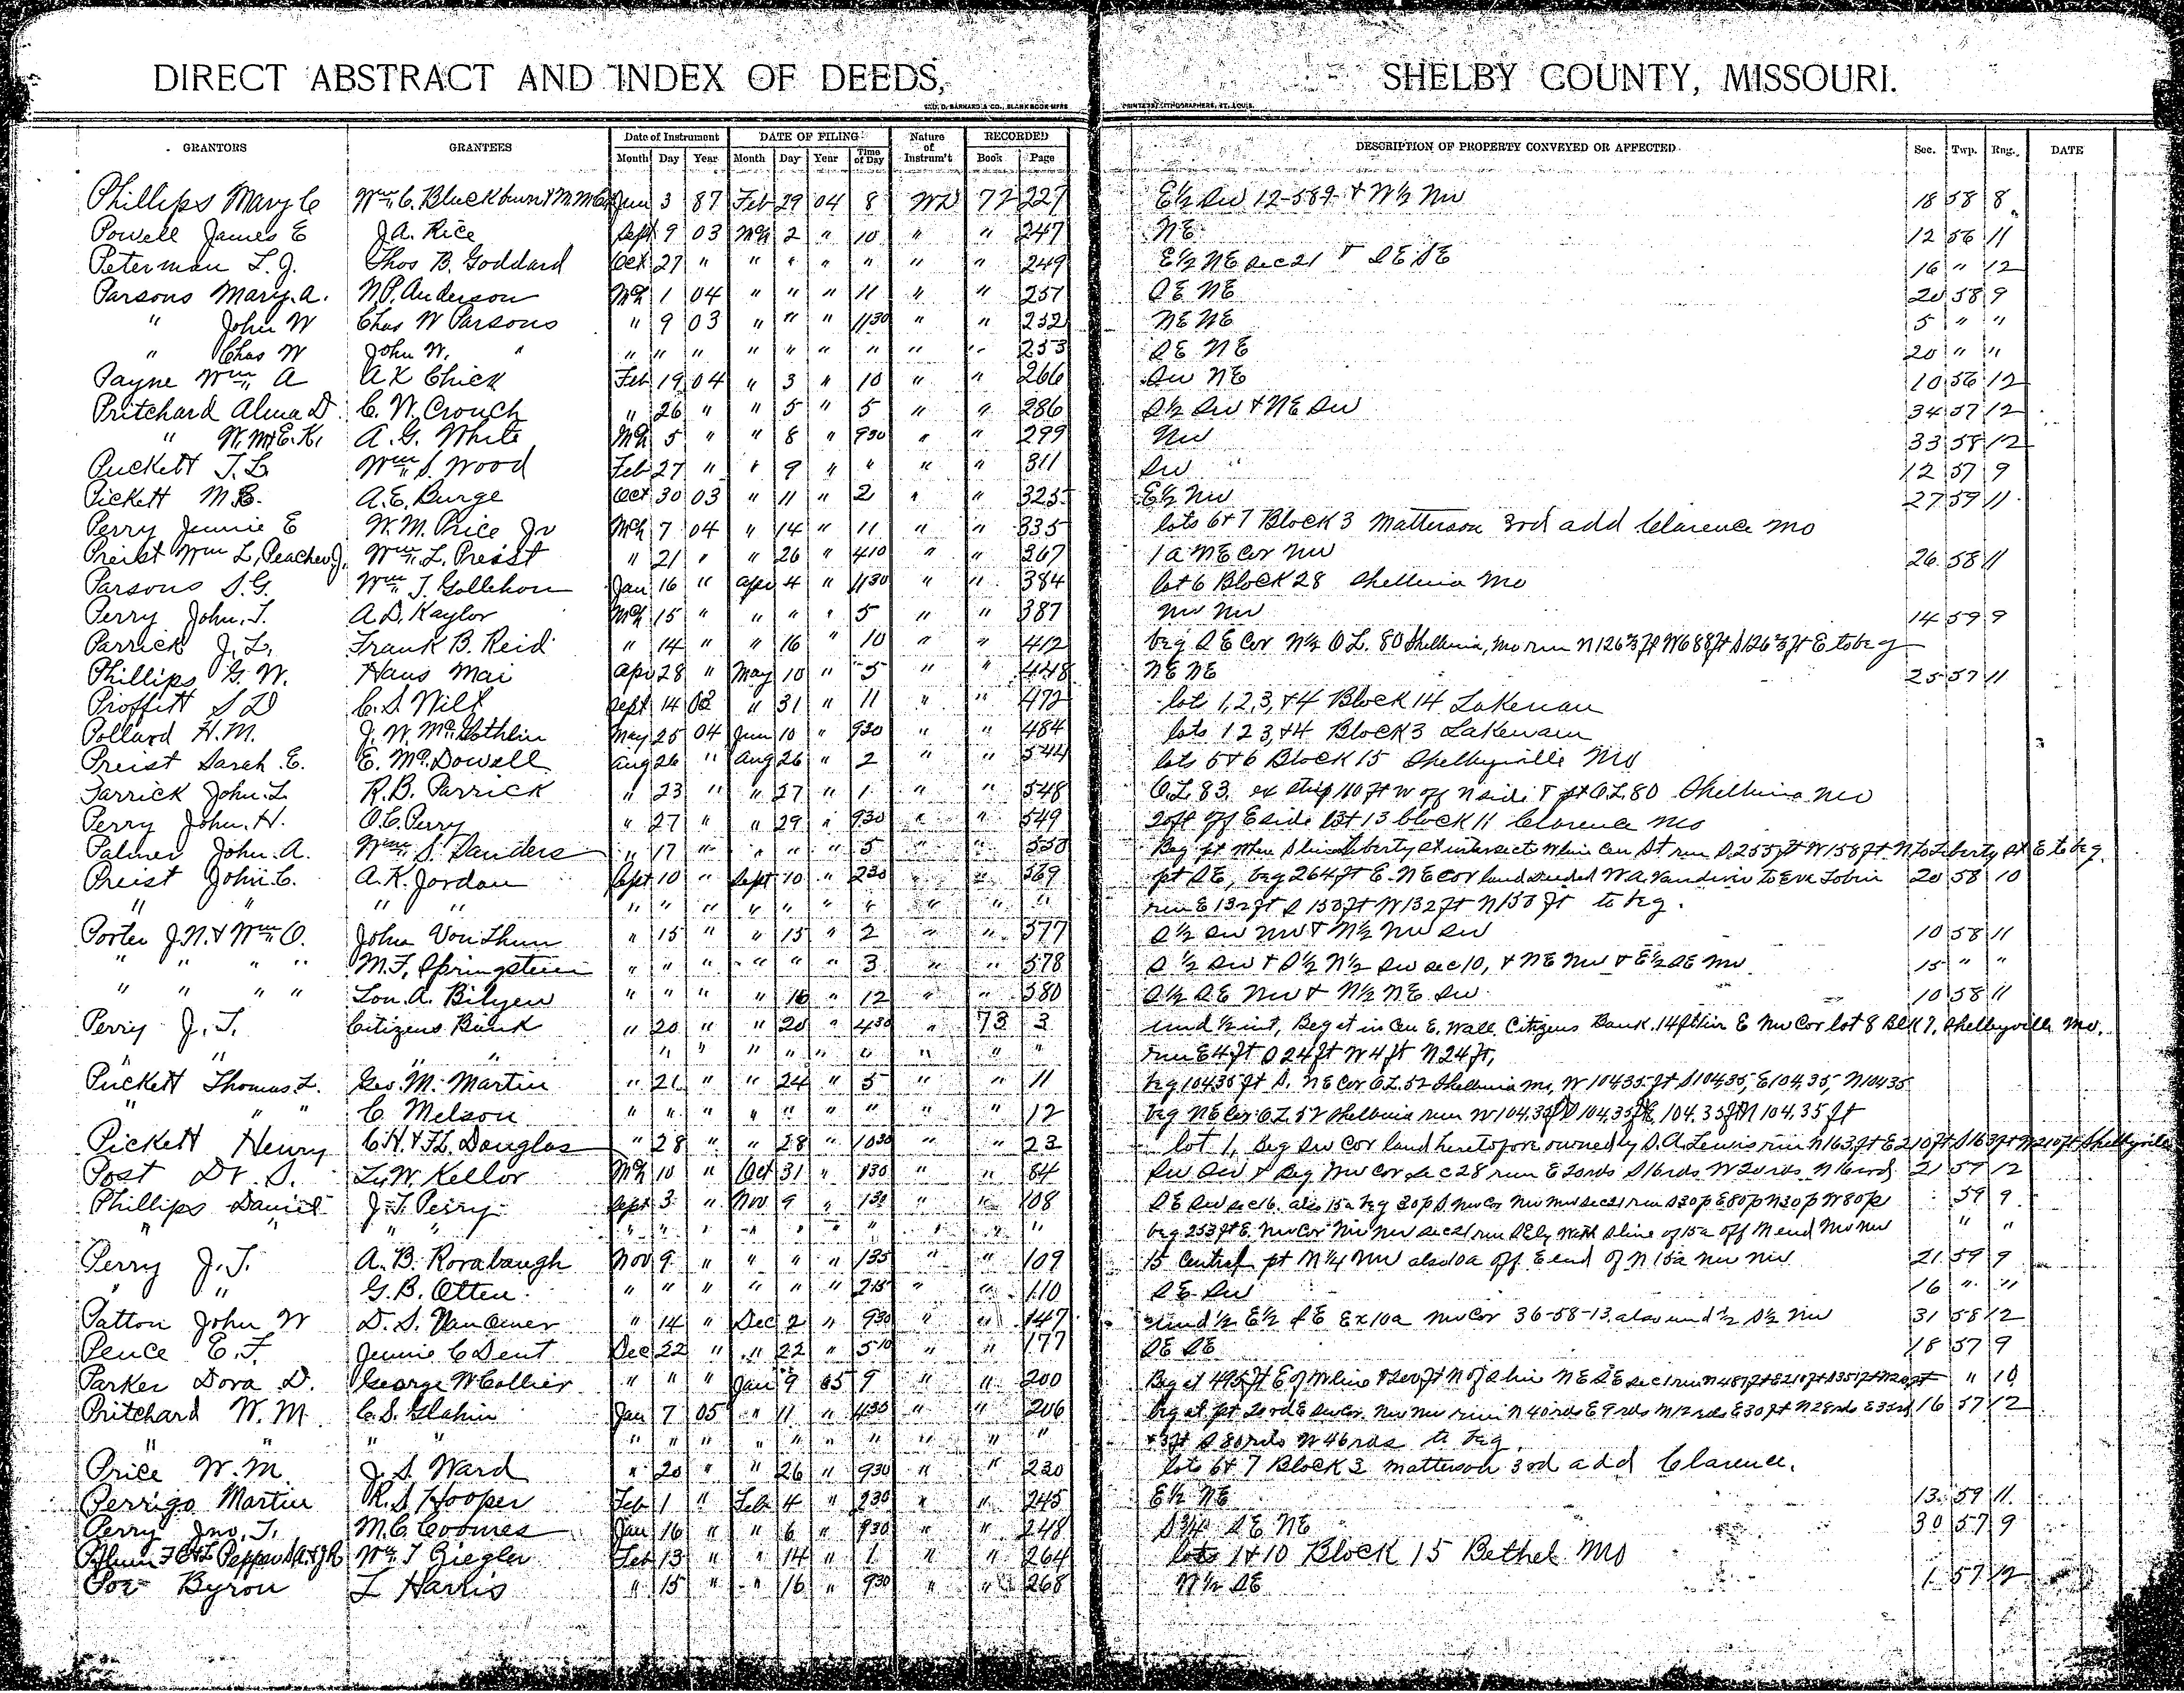 DIRECT ABSTRACT AND INDEX OF DEEDS, SHELBY COUNTY, MISSOURI.
GEO. D. BARNARD & CO., BLANK BOOK MFRS PRINTERS, LITHOGRAPHERS, ST. LOUIS.
GRANTORS GRANTEES Date of Instrument DATE OF FILING Nature of Instrum't RECORDED DESCRIPTION OF PROPERTY CONVEYED OR AFFECTED Sec. Twp. Rng. DATE
Month Day Year Month Day Year Time of Day Book Page
Phillips Mary C Wm C. Blackburn & M.M. 3 87 Feb 29 04 8 WD 72 227 E½ SW 12-58-9 & W½ NW 18 58 8
Powell James E J.A. Rice Sept 9 03 Mch 2 " 10 " " 247 NE 12 56 11
Peterman L.J. Thos B. Goddard Oct 27 " " " " " " " 249 E½ NE Sec 21 & SE SE 16 " 12
Parsons Mary. A. N.P. Anderson Mch 1 04 " " " 11 " " 251 SE NE 20 58 9
" John W Chas W Parsons " 9 03 " " " 1130 " " 252 NE NE 5 " "
" Chas W John W. " " " " " " " " " " 253 SE NE 20 " "
Payne Wm A A K Chick Feb 19 04 " 3 " 10 " " 266 SW NE 10 56 12
Pritchard Alma D. C. W. Crouch " 26 " " 5 " 5 " " 286 S½ SW & NE SW 34 57 12
" W.M & E.K. A. G. White Mch 5 " " 8 " 930 " " 299 NW 33 58 12
Puckett T. L Wm S. Wood Feb 27 " " 9 " " " " 311 SW 12 57 9
Pickett M.E. A. E. Burge Oct 30 03 " 11 " 2 " " 325 E½ NW 27 59 11
Perry Jennie E W. M. Price Jr Mch 7 04 " 14 " 11 " " 335 lots 6 & 7 Block 3 Matterson 3rd add Clarence Mo
Preist Wm L, Peachey J. Wm. L. Preist " 21 " " 26 " 410 " " 367 1 a NE Cor NW 26 58 11
Parsons S.G. Wm T. Gollehon Jan 16 " Apr 4 " 1130 " " 384 lot 6 Block 28 Shelbina Mo
Perry John. T. A. D. Kaylor Mch 15 " " " " 5 " " 387 NW NW 14 59 9
Parrick J. L. Frank B. Reid " 14 " " 16 " 10 " " 412 beg SE Cor N½ O.L. 80 Shelbina, Mo run N 126⅔ ft W 688 ft S 126⅔ ft E to beg
Phillips G. W. Hans Mai Apr 28 " May 10 " 5 " " 448 NE NE 25 57 11
Proffitt S D C. S. Wilt Sept 14 03 " 31 " 11 " " 472 lots 1, 2, 3, & 4 Block 14 Lakenan
Pollard H.M. J. W. McGlothlin May 25 04 Jun 10 " 920 " " 484 lots 1 2 3, & 4 Block 3 Lakenan
Preist Sarah E. E. McDowell Aug 26 " Aug 26 " 2 " " 544 lots 5 & 6 Block 15 Shelbyville Mo
Parrick John. L R. B. Parrick " 23 " " 27 " 1 " " 548 O.L. 83. ex strip 110 ft W off N side & pt O.L. 80 Shelbina Mo
Perry John. H. O. C. Perry " 27 " " 29 " 930 " " 549 20 ft off E side lot 13 block 11 Clarence Mo
Palmer John. A. Wm. S. Sanders " 17 " " " " 5 " " 550 Beg pt where S line Liberty St intersects W line Cen St run S. 255 ft W 158 ft N to Liberty St E to beg.
Preist John. C. A. K. Jordan Sept 10 " Sept 10 " 230 " " 569 pt SE, beg 264 ft E. NE Cor land deeded W. A. Vandiver to Eva Tobin 20 58 10
" " " " " " " " " " " " " " run E 132 ft S 150 ft W 132 ft N 150 ft to beg.
Porter J. N. & Wm O. John Von Thun " 15 " " 15 " 2 " " 577 S½ SW NW & N½ NW SW 10 58 11
" " " " M. F. Springstein " " " " " " 3 " " 578 S½ SW & S½ N½ SW Sec 10, & NE NW & E½ SE NW 15 " "
" " " " Lon. A. Bilyeu " " " " 16 " 12 " " 580 S½ SE NW & N½ NE SW 10 58 11
Perry J. T. Citizens Bank " 20 " " 20 " 430 " 73 3 und ½ int, Beg at in Cen E. Wall Citizens Bank, 14 ft E NW Cor lot 8 Blk 7, Shelbyville Mo.
" " " " " " " " " " " " " " run E 4 ft S 24 ft W 4 ft N 24 ft,
Puckett Thomas L. Geo. M. Martin " 21 " " 24 " 5 " " 11 beg 104.35 ft S. NE Cor O.L. 52 Shelbina Mo, W 104.35 ft S 104.35, E 104.35, N 104.35
" " " C. Melson " " " " " " " " " 12 beg NE Cor O.L. 52 Shelbina run W 104.35 ft S 104.35 ft E 104.35 ft N 104.35 ft
Pickett Henry C. H. & F. L. Douglas " 28 " " 28 " 1030 " " 23 lot 1, Beg SW Cor land heretofore owned by S. A. Lewis run N 163 ft E 210 ft S 163 ft W 210 ft Shelbyville
Post Dr. S. L. W. Kellor Mch 10 " Oct 31 " 830 " " 84 SW SW & Beg NW Cor Sec 28 run E 20 rds S 16 rds W 20 rds N 16 rds 21 59 12
Phillips Daniel J. T. Perry Sept 3 " Nov 9 " 130 " " 108 SE SW Sec 16. also 15 a beg 30 p S. NW Cor NW NW Sec 21 run S 30 p E 80 p N 30 p W 80 p 59 9
" " " " " " " " " " " " " " beg 253 ft E. NW Cor NW NW Sec 21 run SEly with S line of 15 a off N end NW NW " "
Perry J. T. A. B. Rorabaugh Nov 9 " " " " 135 " " 109 15 Central pt N¼ NW also 10 a off E end of N 15 a NW NW 21 59 9
" " G. B. Otten " " " " " " 215 " " 110 SE SW 16 " "
Patton John W D. S. Van " 14 " Dec 2 " 930 " " 147 und ½ E½ SE Ex 10 a NW Cor 36-58-13, also und ½ S½ NW 31 58 12
Pence E. F. Jennie C Dent Dec 22 " " 22 " 510 " " 177 SE SE 18 57 9
Parker Dora D. George W Collier " " " Jan 9 05 9 " " 200 Beg at 495 ft E of W line & 200 ft N of S line NE SE Sec 1 run N " 10
Pritchard W. M. C. S. Glahn Jan 7 05 " 11 " 430 " " 206 beg at pt 20 rd E SW Cor. NW NW run N 40 rds E 9 rds N 12 rds E 30 ft N 28 rds E 35 rd 16 57 12
" " " " " " " " " " " " " " & 3 ft S 80 rds W 46 rds to beg.
Price W. M. J. S. Ward " 20 " " 26 " 930 " " 230 lots 6 & 7 Block 3 Matterson 3rd add Clarence.
Perrigo Martin R. S. Hooper Feb 1 " Feb 4 " 230 " " 245 E½ NE 13 59 11
Perry Jno. T. M. C. Coomes Jan 16 " " 6 " 930 " " 248 S¾ SE NE 30 57 9
Wm. T Ziegler Feb 13 " " 14 " 1 " " 264 lots 1 & 10 Block 15 Bethel Mo
Poe Byron L Harris " 15 " " 16 " 930 " " 268 N½ SE 1 57 12